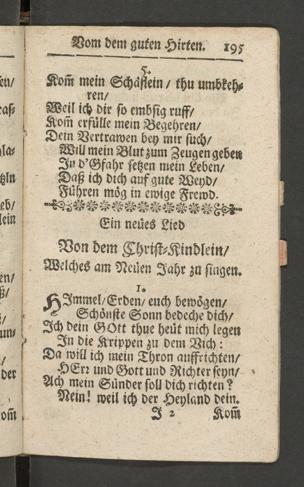 Vom dem guten Hirten. 195
5.
Kom̃ mein Schäflein / thu umbkeh-
ren/
Weil ich dir so embsig ruff/
Kom̃ erfülle mein Begehren/
Dein Vertrawen bey mir such/
Will mein Blut zum Zeugen geben
In d'Gfahr setzen mein Leben/
Daß ich dich auf gute Weyd/
Führen mög in ewige Frewd.
Ein neües Lied
Von dem Christ-Kindlein/
Welches am Neüen Jahr zu singen.
1.
HImmel/Erden/ euch bewögen/
Schönste Sonn bedecke dich/
Ich dein GOtt thue heüt mich legen
In die Krippen zu dem Vich:
Da will ich mein Thron auffrichten/
HErr und Gott und Richter seyn/
Ach mein Sünder soll dich richten?
Nein! weil ich der Heyland dein.
J 2 Kom̃